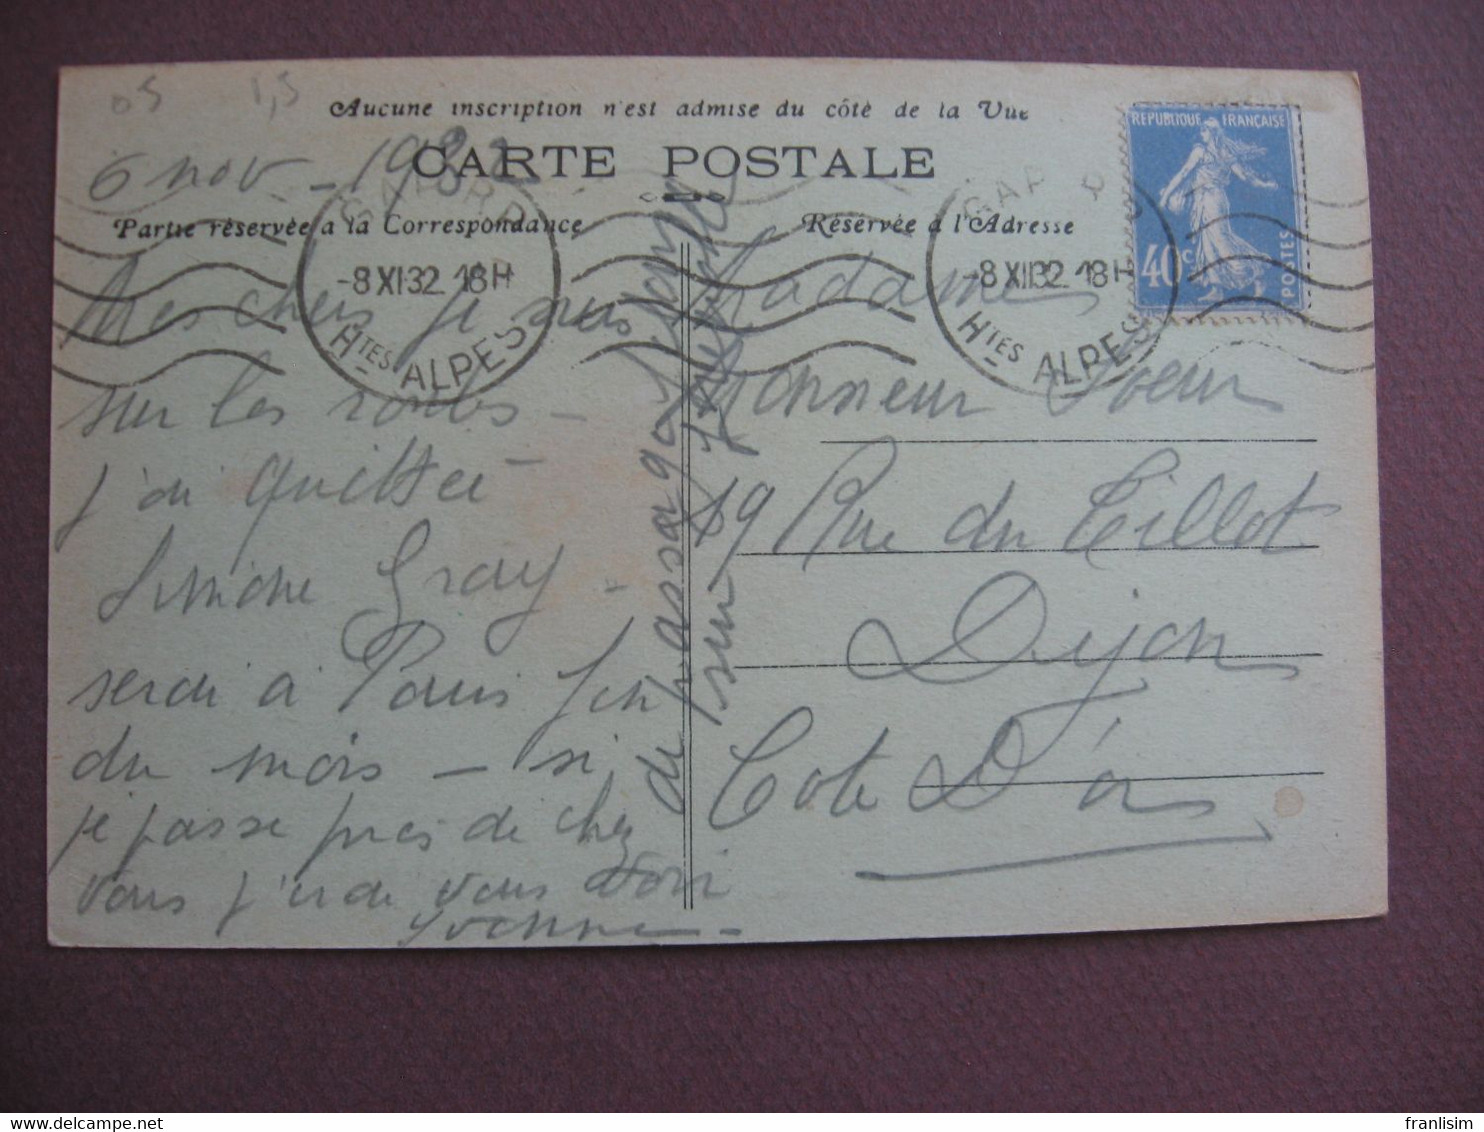 05 1,5
Aucune inscription n'est admise du côté de la Vue
CARTE POSTALE
6 nov - 1932
Partie réservée à la Correspondance
Réservée à l'Adresse
GAP
-8 XI 32 18H
HTES ALPES
GAP
-8 XI 32 18H
HTES ALPES
REPUBLIQUE FRANÇAISE
40c
POSTES
Mes chers je suis
sur les routes -
j'ai quittée
Simone Gray -
serai à Paris fin
du mois - si
je passe près de chez
vous j'irai vous voir
Yvonne -
du passage
sur
Madame
Monsieur Soeur
19 Rue du Tillot
Dijon
Cote D'or
franlisim
delcampe.net